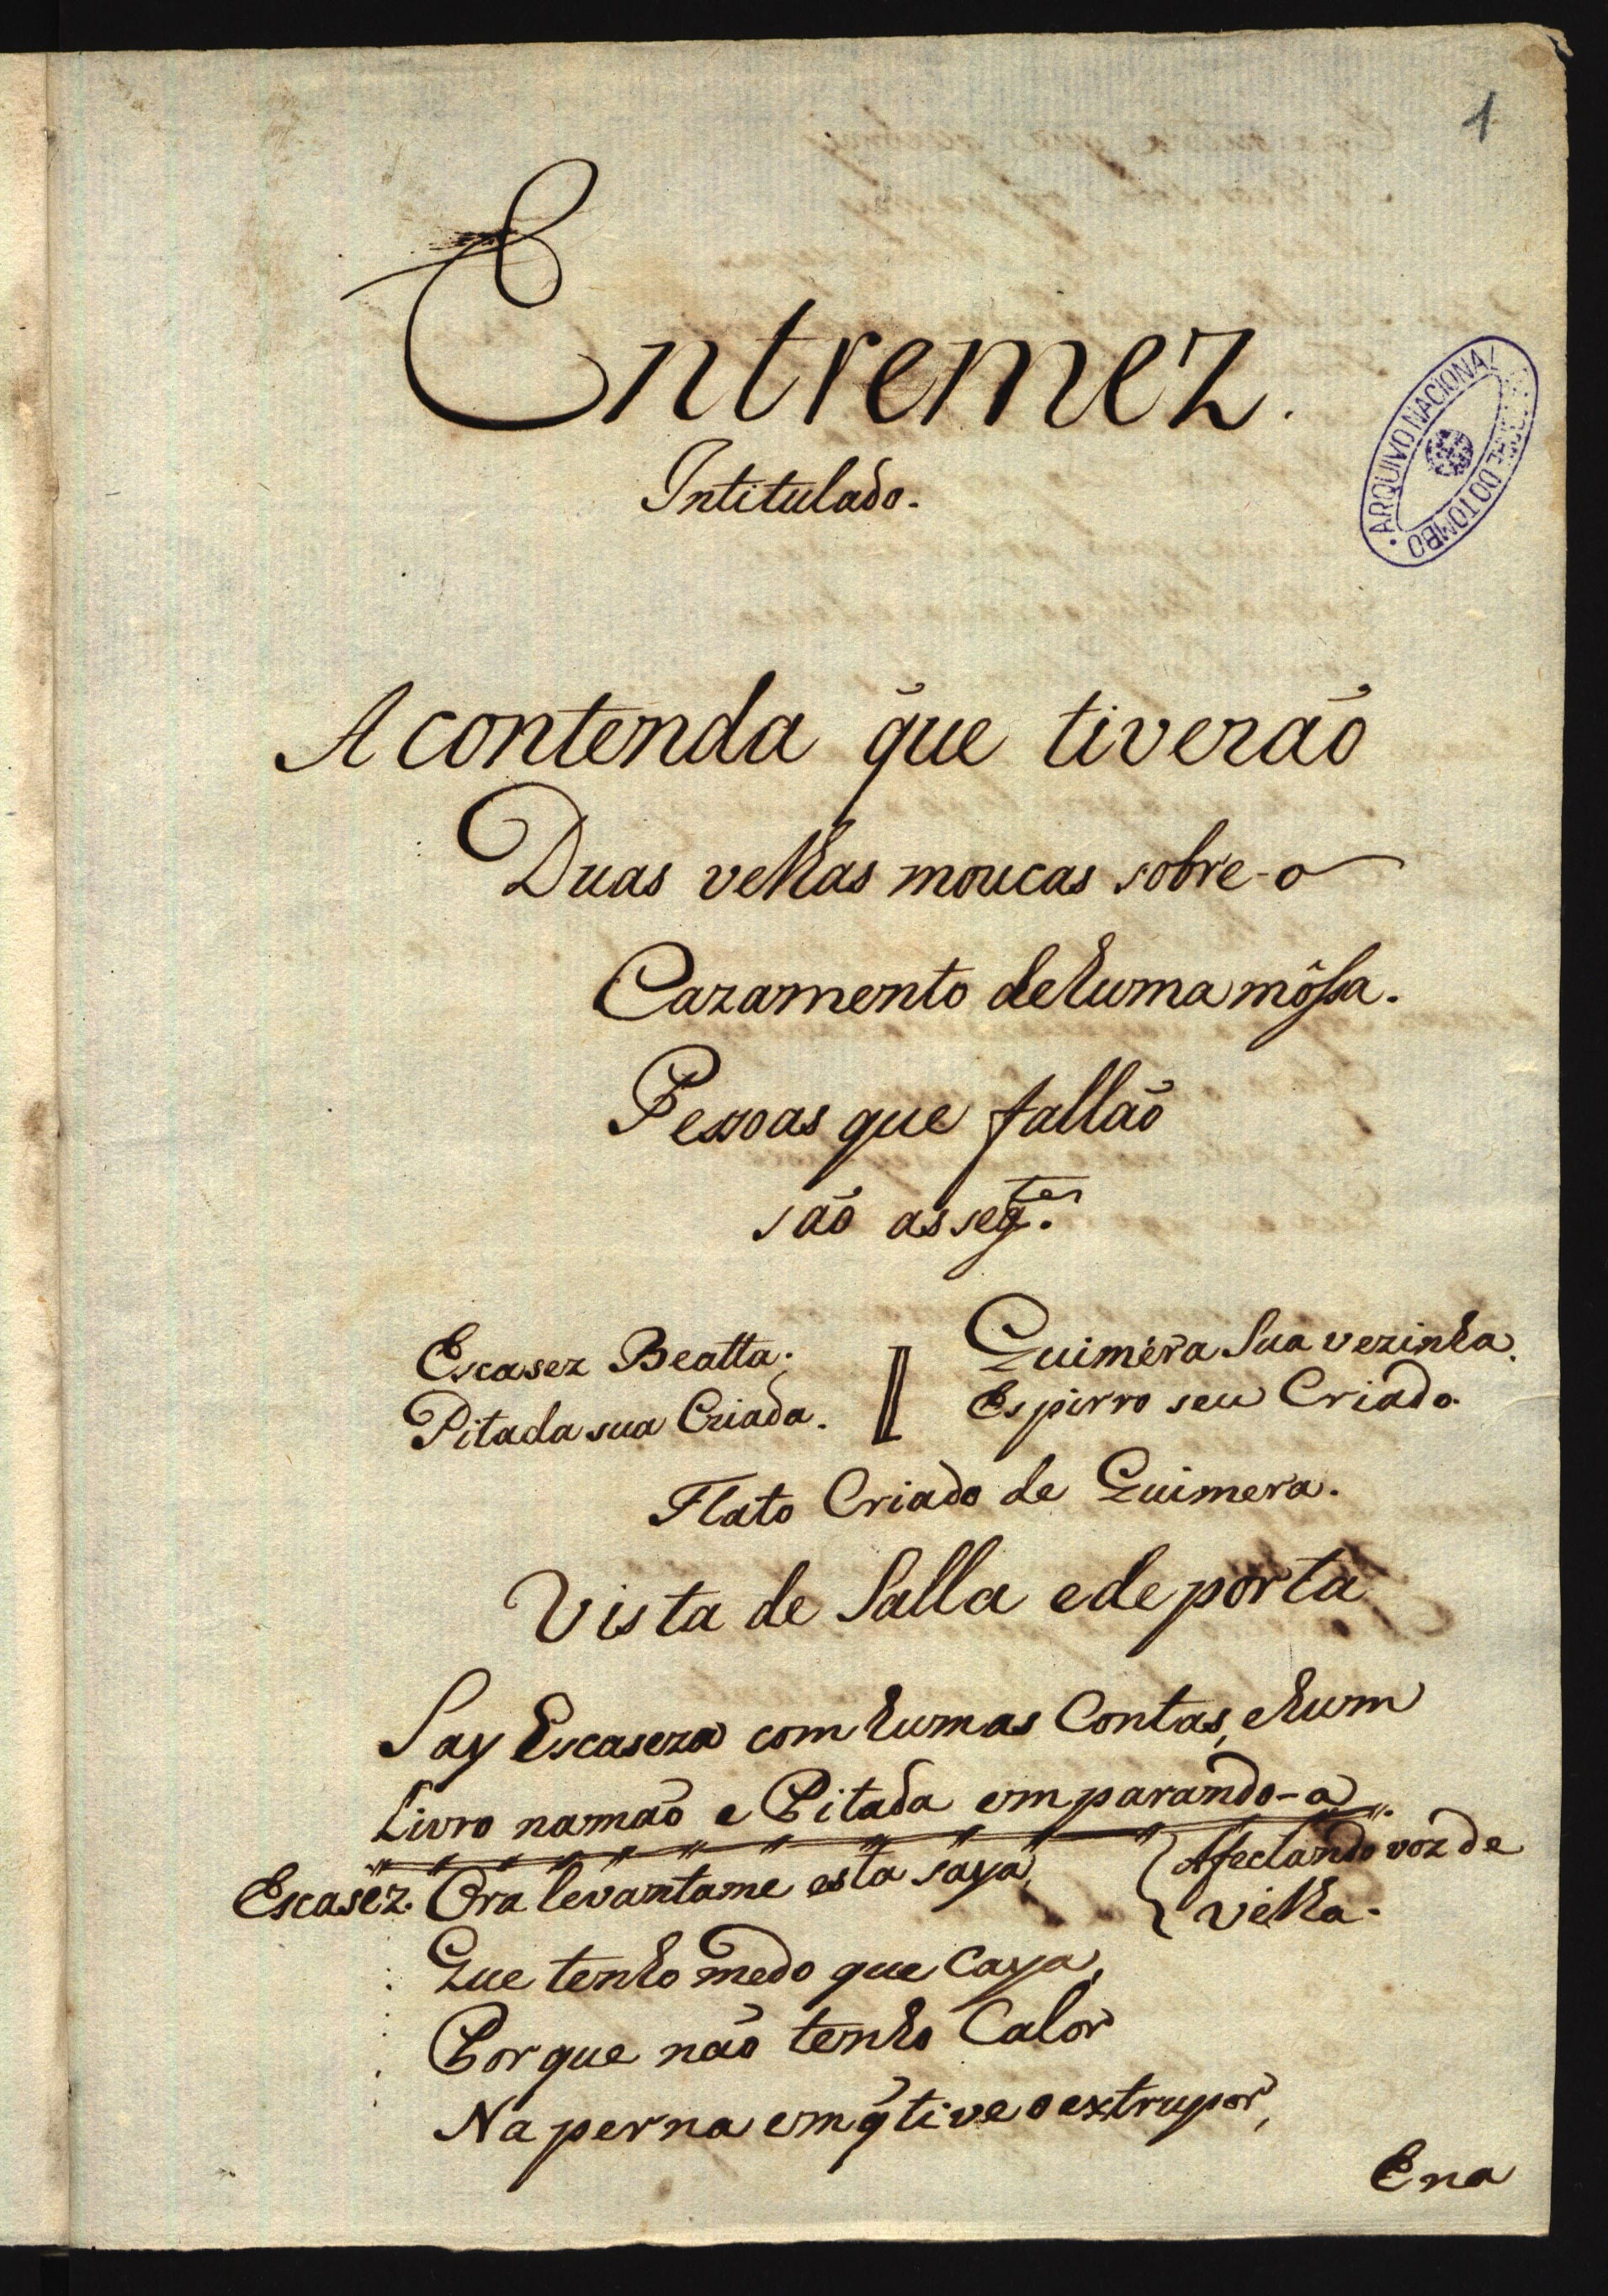 1
Entremez.
Intitulado.
ARQUIVO NACIONAL DA TORRE DO TOMBO
A contenda que tiverão
Duas velhas moucas sobre-o
Cazamento dehuma môssa.
Pessoas que fallão
são as seg.tes
Escasez Beatta.
Quiméra Sua vezinha.
Pitada sua Criada.
Espirro seu Criado.
Flato Criado de Quimera.
Vista de Salla e de porta
Say Escaseza com humas Contas, e hum
Livro na mão e Pitada emparando-a
Escasez. Ora levantame esta saya,
Afectando voz de
velha.
Que tenho medo que Caya,
Porque não tenho Calor
Na perna em q̃ tive o extrupor,
Ena